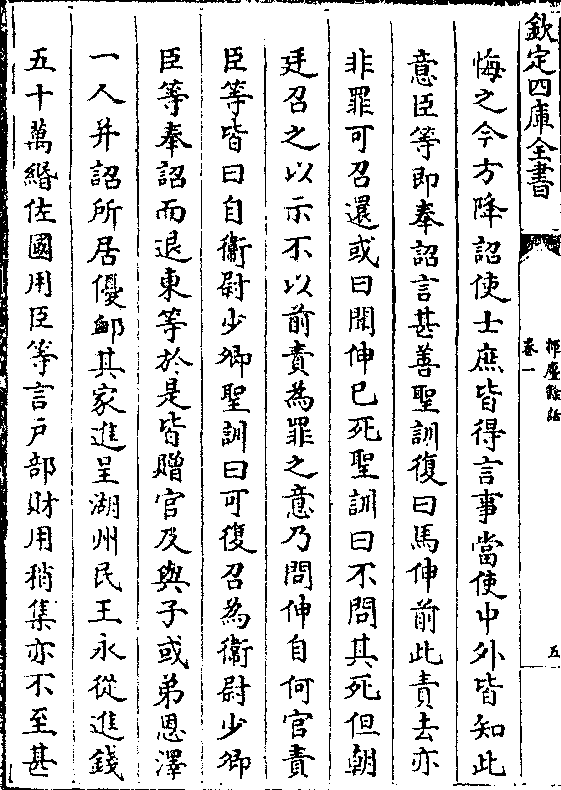 欽定四庫全書
揮麈餘話
卷一
五
悔之今方降詔使士庶皆得言事當使中外皆知此
意臣等即奉詔言甚善聖訓復曰馬伸前此責去亦
非罪可召還或曰聞伸已死聖訓曰不問其死但朝
廷召之以示不以前責為罪之意乃問伸自何官責
臣等皆曰自衞尉少卿聖訓曰可復召為衞尉少卿
臣等奉詔而退東等於是皆贈官及與子或弟恩澤
一人并詔所居優䘏其家進呈湖州民王永從進錢
五十萬緡佐國用臣等言戸部財用稍集亦不至甚